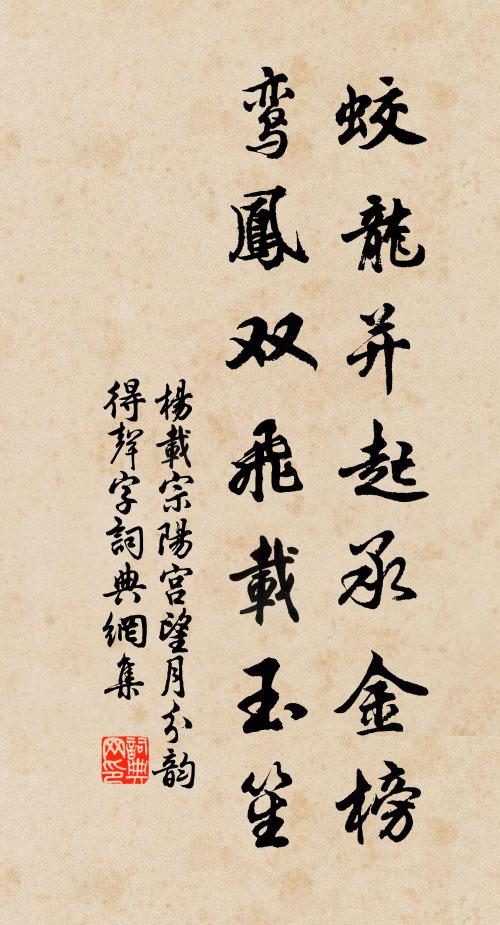 蛟龍并起承金榜
鸾鳳双飛載玉笙
楊載宗陽宮望月分韵
得聲字詞典網集
詞典网印